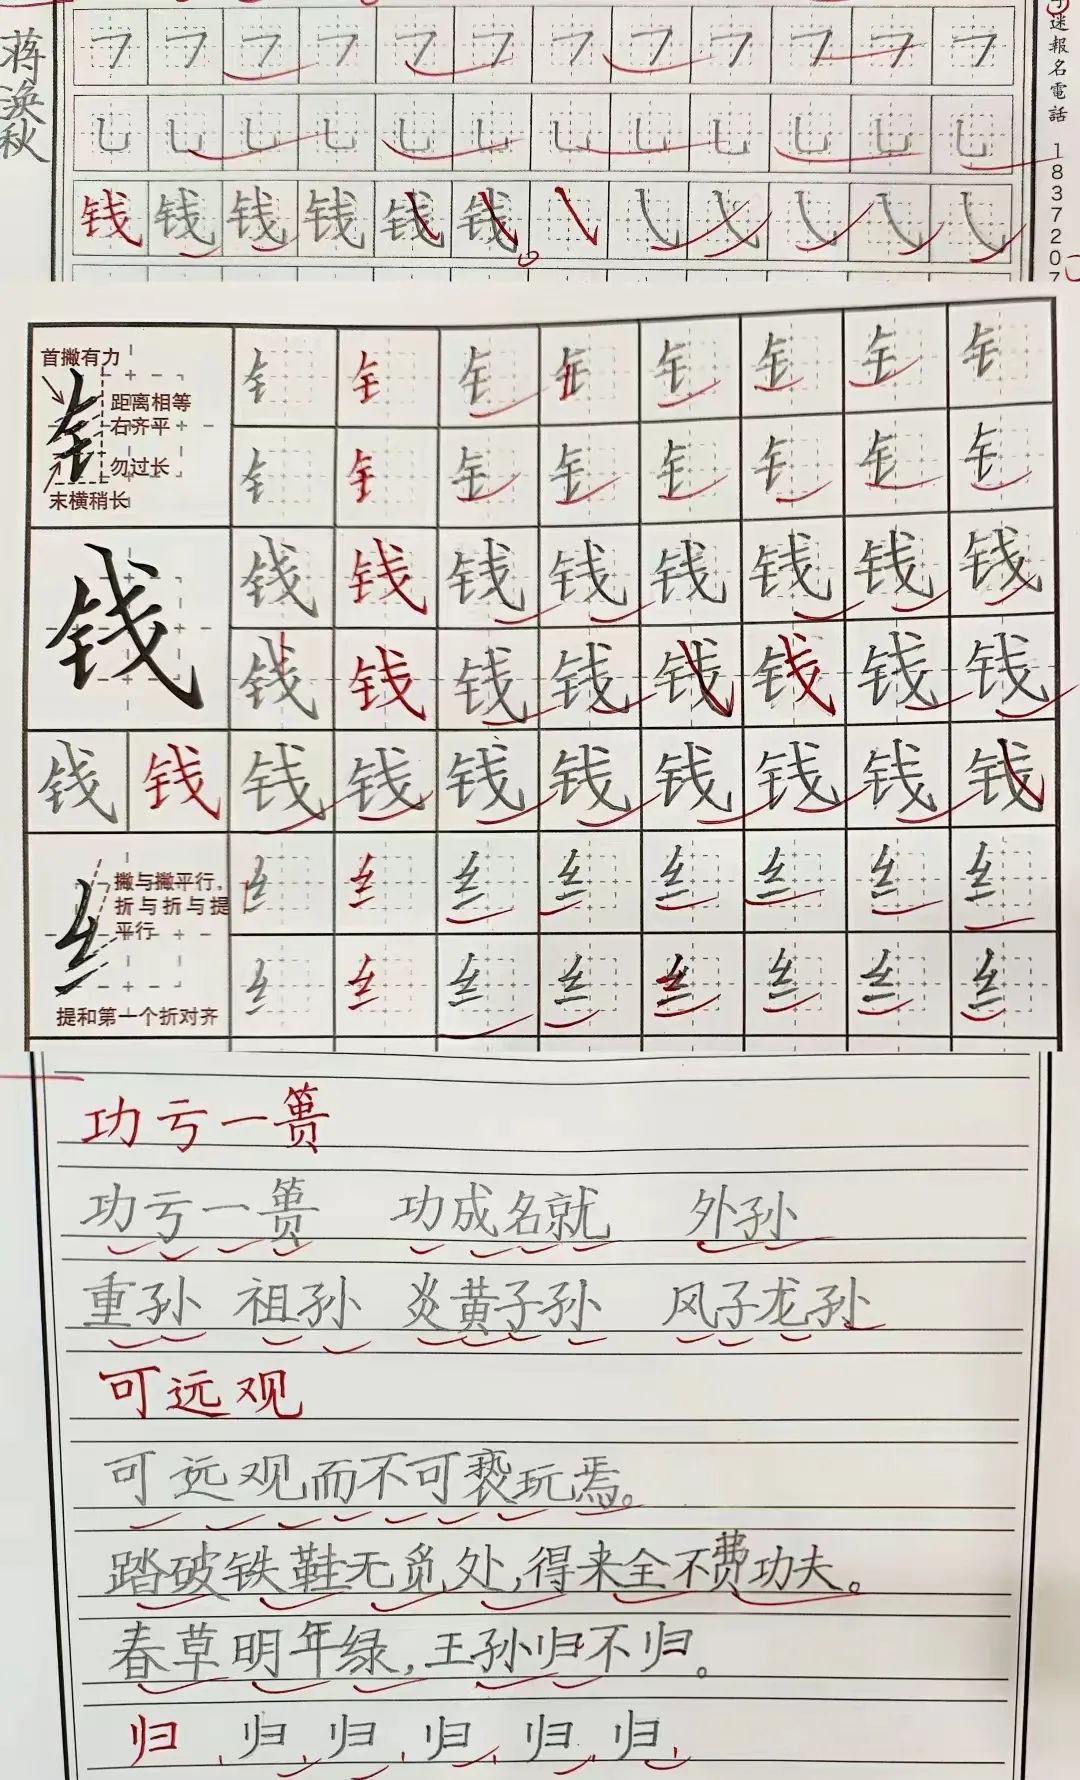 蒋涣秋
迷報名電話 18372207
钱 钱 钱 钱 钱 钱
首撇有力
距离相等
右齐平
勿过长
末横稍长
钅 钅 钅 钅 钅 钅 钅 钅
钅 钅 钅 钅 钅 钅 钅 钅
钱
钱 钱 钱 钱 钱 钱 钱 钱
钱 钱 钱 钱 钱 钱 钱 钱
钱 钱 钱 钱 钱 钱 钱 钱 钱 钱
撇与撇平行，
折与折与提
平行
提和第一个折对齐
纟 纟 纟 纟 纟 纟 纟 纟
纟 纟 纟 纟 纟 纟 纟 纟
功亏一篑
功亏一篑 功成名就 外孙
重孙 祖孙 炎黄子孙 风子龙孙
可远观
可远观而不可亵玩焉。
踏破铁鞋无觅处,得来全不费功夫。
春草明年绿,王孙归不归。
归 归 归 归 归 归